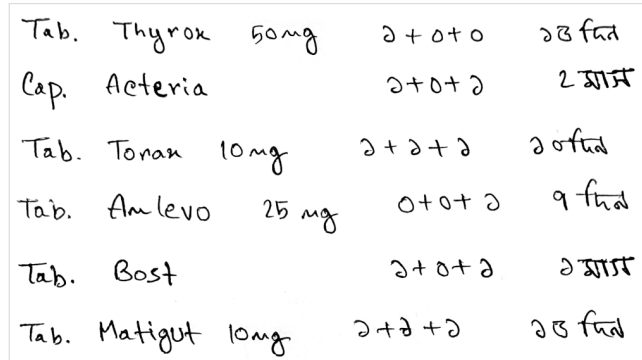 Tab. Thyrox 50mg ১+০+০ ১৫ দিন
Cap. Acteria ১+০+১ ২ মাস
Tab. Torax 10mg ১+১+১ ১০ দিন
Tab. Amlevo 25 mg ০+০+১ ৭ দিন
Tab. Bost ১+০+১ ১ মাস
Tab. Matigut 10mg ১+১+১ ১৫ দিন